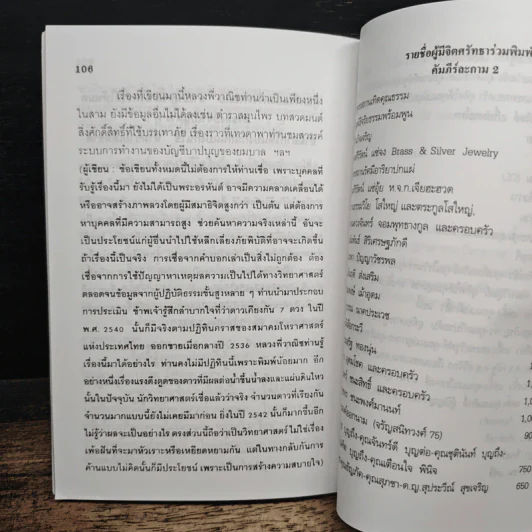 106
เรื่องที่เขียนมานี้หลวงพี่วาณิชท่านว่าเป็นเพียงหนึ่ง
ในสาม ยังมีข้อมูลอื่นไม่ได้ลงเช่น ตำราสมุนไพร บทสวดมนต์
สิ่งศักดิ์สิทธิ์ที่ใช้บรรเทาภัย เรื่องราวที่เทวดาพาท่านชมสวรรค์
ระบบการทำงานของบัญชีบาปบุญของยมบาล ฯลฯ
(ผู้เขียน : ข้อเขียนทั้งหมดนี้ไม่ต้องการให้ท่านเชื่อ เพราะบุคคลที่
รับรู้เรื่องนี้มา ยังไม่ได้เป็นพระอรหันต์ อาจมีความคลาดเคลื่อนได้
หรืออาจสร้างภาพลวงโดยผู้มีสมาธิจิตสูงกว่า เป็นต้น แต่ต้องการ
หาบุคคลที่มีความสามารถสูง ช่วยค้นหาความจริงเหล่านี้ อันจะ
เป็นประโยชน์แก่ผู้อื่นนำไปใช้หลีกเลี่ยงภัยพิบัติที่อาจจะเกิดขึ้น
ถ้าเรื่องนี้เป็นจริง การเชื่อจากคำบอกเล่าเป็นสิ่งไม่ถูกต้อง ต้อง
เชื่อจากการใช้ปัญญาหาเหตุผลความเป็นไปได้ทางวิทยาศาสตร์
ตลอดจนข้อมูลจากผู้ปฏิบัติธรรมชั้นสูงหลาย ๆ ท่านนำมาประกอบ
การประเมิน ข้าพเจ้ารู้สึกลำบากใจที่ว่าดาวเคียงกัน 7 ดวง ในปี
พ.ศ. 2540 นั้นก็มีจริงตามปฏิทินดาราศาสตร์ของสมาคมโหราศาสตร์
แห่งประเทศไทย ออกขายเมื่อกลางปี 2536 หลวงพี่วาณิชท่านรู้
เรื่องนี้มาได้อย่างไร ท่านคงไม่มีปฏิทินนี้เพราะพิมพ์น้อยมาก อีก
อย่างหนึ่งเรื่องแรงดึงดูดของดาวที่มีผลต่อน้ำขึ้นน้ำลงและแผ่นดินไหว
นั้นในปัจจุบัน นักวิทยาศาสตร์เชื่อแล้วว่าจริง จำนวนดาวที่เรียงกัน
จำนวนมากแบบนี้ยังไม่เคยมีมาก่อน ยิ่งในปี 2542 นั้นก็มากขึ้นอีก
ไม่รู้ว่าผลจะเป็นอย่างไร ตรงส่วนนี้ถือว่าเป็นวิทยาศาสตร์ ไม่ใช่เรื่อง
เพ้อฝันที่จะมาหัวเราะหรือเหยียดหยามกัน แต่ในทางกลับกันการ
ค้านแบบไม่คิดนั้นก็มีประโยชน์ เพราะเป็นการสร้างความสบายใจ)
รายชื่อผู้มีจิตศรัทธาร่วมพิมพ์
คัมภีร์ละกาม 2
Brass & Silver Jewelry
ห.จ.ก.เจียฮะฮวด
โสใหญ่ และตระกูลโสใหญ่
และครอบครัว
สิริเศรษฐภักดี
ปัญญาวัชรพล
ส่งเสริม
เม้าอุดม
นาคประเวช
ทองนุ่น
และครอบครัว
ชนะสิทธิ์ และครอบครัว
ชนะพงศ์มานนท์
(จรัญสนิทวงศ์ 75)
750
650